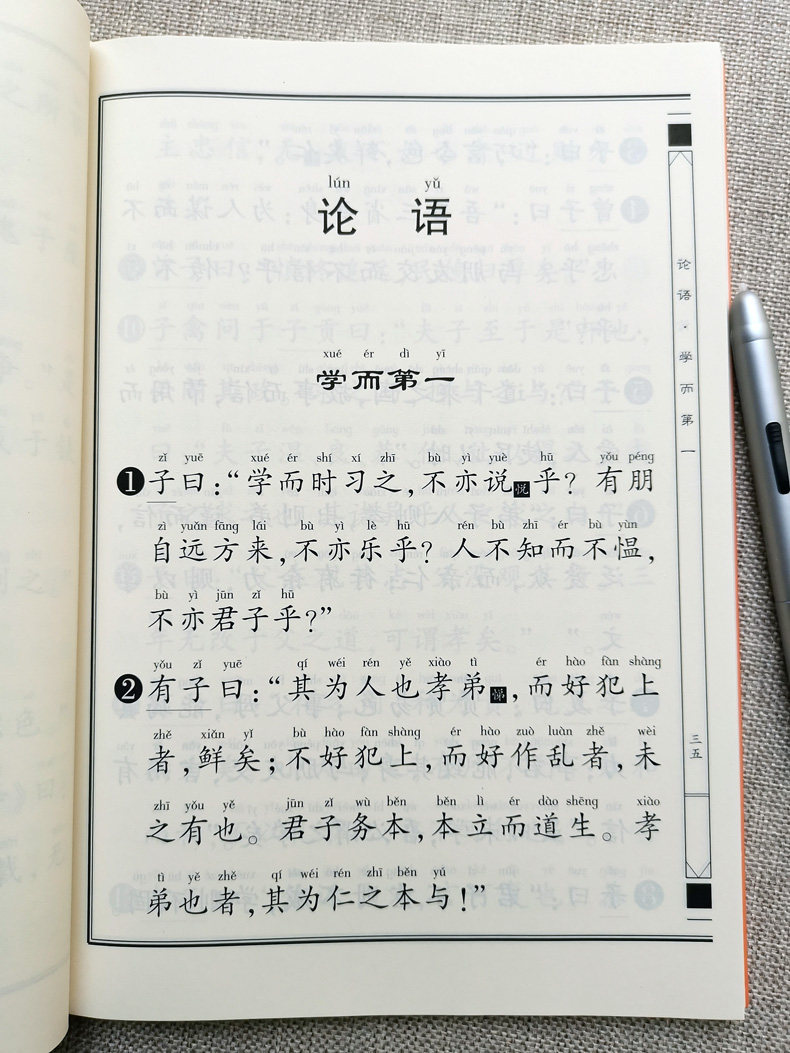 lún yǔ
论 语
xué ér dì yī
学而第一
zǐ yuē xué ér shí xí zhī bù yì yuè hū yǒu péng
❶子曰：“学而时习之，不亦说悦乎？有朋
zì yuǎn fāng lái bù yì lè hū rén bù zhī ér bù yùn
自远方来，不亦乐乎？人不知而不愠，
bù yì jūn zǐ hū
不亦君子乎？”
yǒu zǐ yuē qí wéi rén yě xiào tì ér hào fàn shàng
❷有子曰：“其为人也孝弟悌，而好犯上
zhě xiǎn yǐ bù hào fàn shàng ér hào zuò luàn zhě wèi
者，鲜矣；不好犯上，而好作乱者，未
zhī yǒu yě jūn zǐ wù běn běn lì ér dào shēng xiào
之有也。君子务本，本立而道生。孝
tì yě zhě qí wéi rén zhī běn yú
弟也者，其为仁之本与！”
论语·学而第一
三五